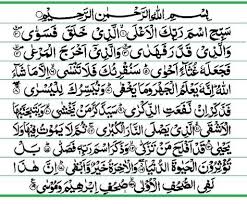 بِسْمِ اللهِ الرَّحْمٰنِ الرَّحِيْمِ
سَبِّحِ اسْمَ رَبِّكَ الْاَعْلَى ۙ الَّذِيْ خَلَقَ فَسَوّٰى ۙ
وَالَّذِيْ قَدَّرَ فَهَدٰى ۙ وَالَّذِيْٓ اَخْرَجَ الْمَرْعٰى ۙ
فَجَعَلَهٗ غُثَآءً اَحْوٰى ۙ سَنُقْرِئُكَ فَلَا تَنْسٰٓى ۙ اِلَّا مَا شَآءَ
اللهُ ؕ اِنَّهٗ يَعْلَمُ الْجَهْرَ وَمَا يَخْفٰى ؕ وَنُيَسِّرُكَ لِلْيُسْرٰى ۚ
فَذَكِّرْ اِنْ نَّفَعَتِ الذِّكْرٰى ؕ سَيَذَّكَّرُ مَنْ يَّخْشٰى ۙ وَيَتَجَنَّبُهَا
الْاَشْقَى ۙ الَّذِيْ يَصْلَى النَّارَ الْكُبْرٰى ۚ ثُمَّ لَا يَمُوْتُ فِيْهَا وَلَا
يَحْيٰى ؕ قَدْ اَفْلَحَ مَنْ تَزَكّٰى ۙ وَذَكَرَ اسْمَ رَبِّهٖ فَصَلّٰى ؕ بَلْ
تُؤْثِرُوْنَ الْحَيٰوةَ الدُّنْيَا ۖ وَالْاٰخِرَةُ خَيْرٌ وَّاَبْقٰى ؕ اِنَّ هٰذَا
لَفِي الصُّحُفِ الْاُوْلٰى ۙ صُحُفِ اِبْرٰهِيْمَ وَمُوْسٰى